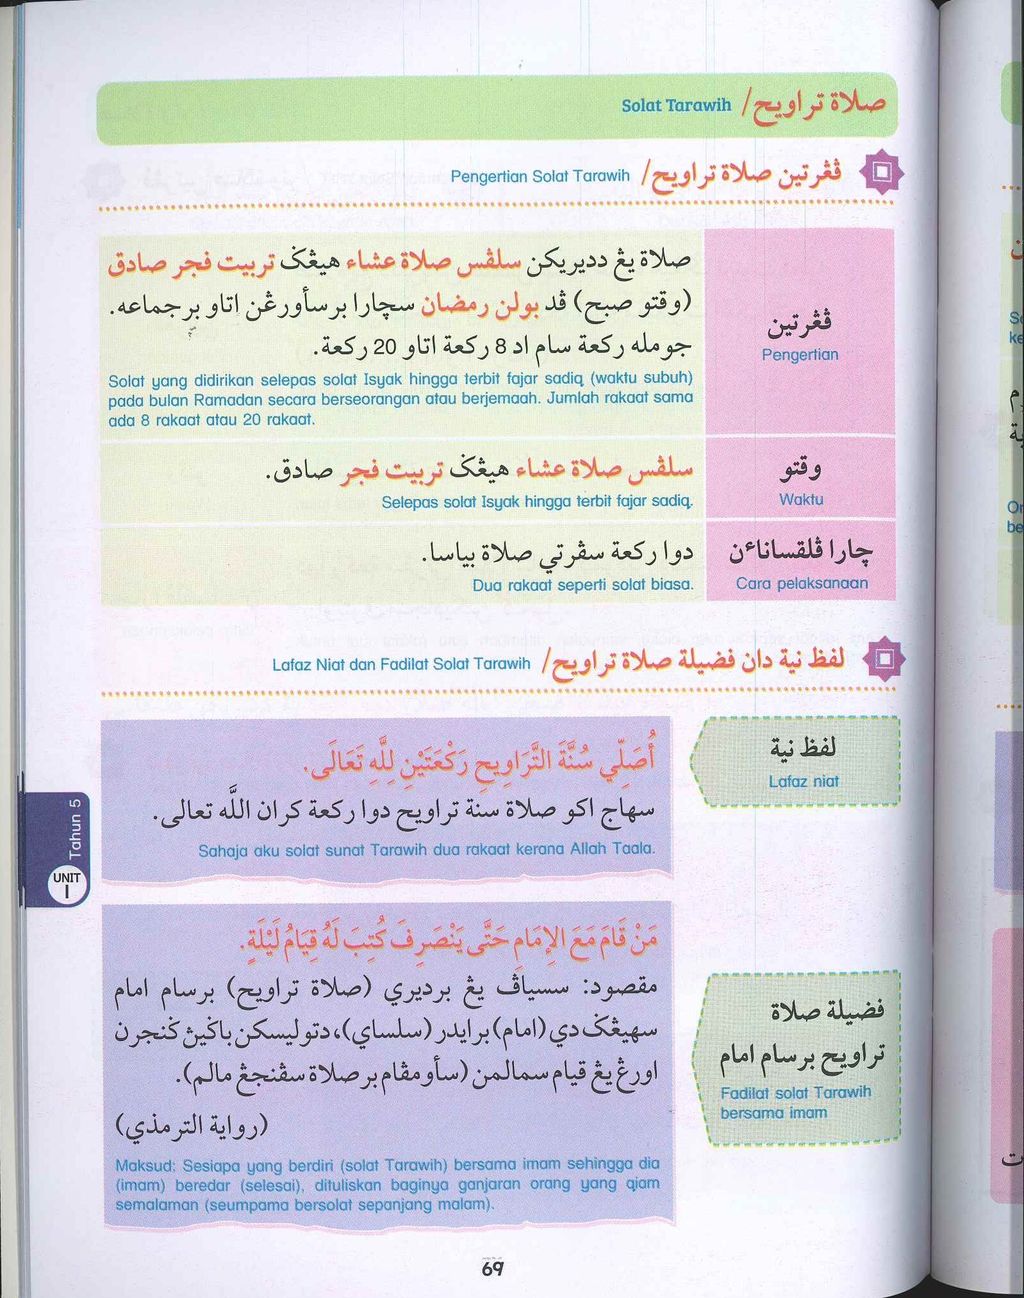 صلاة تراويح/ Solat Tarawih
ڤڠرتين صلاة تراويح/ Pengertian Solat Tarawih
ڤڠرتين
Pengertian
صلاة يڠ دديريكن سلڤس صلاة عشاء هيڠݢ تربيت فجر صادق
(وقتو صبح) ڤد بولن رمضان سچارا برسأورڠن اتاو برجماعه.
جومله ركعة سام ادا 8 ركعة اتاو 20 ركعة.
Solat yang didirikan selepas solat Isyak hingga terbit fajar sadiq (waktu subuh)
pada bulan Ramadan secara berseorangan atau berjemaah. Jumlah rakaat sama
ada 8 rakaat atau 20 rakaat.
وقتو
Waktu
سلڤس صلاة عشاء هيڠݢ تربيت فجر صادق.
Selepas solat Isyak hingga terbit fajar sadiq.
چارا ڤلقساناءن
Cara pelaksanaan
دوا ركعة سڤرتي صلاة بياسا.
Dua rakaat seperti solat biasa.
لفظ نية دان فضيلة صلاة تراويح/ Lafaz Niat dan Fadilat Solat Tarawih
لفظ نية
Lafaz niat
أُصَلِّي سُنَّةَ التَّرَاوِيحِ رَكْعَتَيْنِ لِلَّهِ تَعَالَى.
سهاج اكو صلاة سنة تراويح دوا ركعة كران الله تعالى.
Sahaja aku solat sunat Tarawih dua rakaat kerana Allah Taala.
فضيلة صلاة
تراويح برسام امام
Fadilat solat Tarawih
bersama imam
مَنْ قَامَ مَعَ الإِمَامِ حَتَّى يَنْصَرِفَ كُتِبَ لَهُ قِيَامُ لَيْلَةٍ.
مقصود: سسياڤ يڠ برديري (صلاة تراويح) برسام امام
سهيڠݢ دي (امام) برايدر (سلساي)، دتوليسكن باݢيڽ ݢنجرن
اورڠ يڠ قيام سمالمن (سأومڤام برصلاة سڤنجڠ مالم).
(رواية الترمذي)
Maksud: Sesiapa yang berdiri (solat Tarawih) bersama imam sehingga dia
(imam) beredar (selesai), dituliskan baginya ganjaran orang yang qiam
semalaman (seumpama bersolat sepanjang malam).
Tahun 5
UNIT
1
69